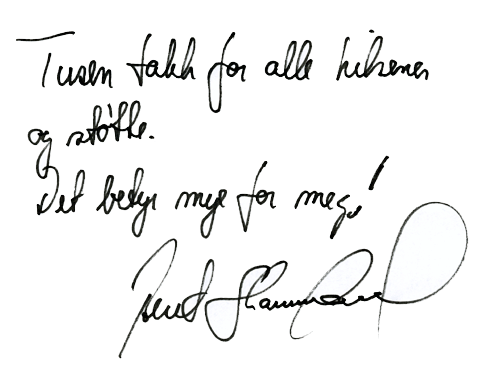 Tusen takk for alle hilsener
og støtte.
Det betyr mye for meg!
Bent Skammelsrud